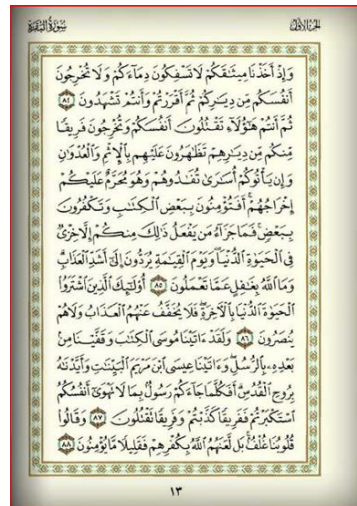 الجزء الأول
سورة البقرة
وَإِذْ أَخَذْنَا مِيثَٰقَكُمْ لَا تَسْفِكُونَ دِمَآءَكُمْ وَلَا تُخْرِجُونَ
أَنفُسَكُم مِّن دِيَٰرِكُمْ ثُمَّ أَقْرَرْتُمْ وَأَنتُمْ تَشْهَدُونَ ٨٤
ثُمَّ أَنتُمْ هَٰٓؤُلَآءِ تَقْتُلُونَ أَنفُسَكُمْ وَتُخْرِجُونَ فَرِيقًا
مِّنكُم مِّن دِيَٰرِهِمْ تَظَٰهَرُونَ عَلَيْهِم بِٱلْإِثْمِ وَٱلْعُدْوَٰنِ
وَإِن يَأْتُوكُمْ أُسَٰرَىٰ تُفَٰدُوهُمْ وَهُوَ مُحَرَّمٌ عَلَيْكُمْ
إِخْرَاجُهُمْ ۚ أَفَتُؤْمِنُونَ بِبَعْضِ ٱلْكِتَٰبِ وَتَكْفُرُونَ
بِبَعْضٍ ۚ فَمَا جَزَآءُ مَن يَفْعَلُ ذَٰلِكَ مِنكُمْ إِلَّا خِزْىٌ
فِى ٱلْحَيَوٰةِ ٱلدُّنْيَا ۖ وَيَوْمَ ٱلْقِيَٰمَةِ يُرَدُّونَ إِلَىٰٓ أَشَدِّ ٱلْعَذَابِ ۗ
وَمَا ٱللَّهُ بِغَٰفِلٍ عَمَّا تَعْمَلُونَ ٨٥ أُو۟لَٰٓئِكَ ٱلَّذِينَ ٱشْتَرَوُا۟
ٱلْحَيَوٰةَ ٱلدُّنْيَا بِٱلْءَاخِرَةِ ۖ فَلَا يُخَفَّفُ عَنْهُمُ ٱلْعَذَابُ وَلَا هُمْ
يُنصَرُونَ ٨٦ وَلَقَدْ ءَاتَيْنَا مُوسَى ٱلْكِتَٰبَ وَقَفَّيْنَا مِنۢ
بَعْدِهِۦ بِٱلرُّسُلِ ۖ وَءَاتَيْنَا عِيسَى ٱبْنَ مَرْيَمَ ٱلْبَيِّنَٰتِ وَأَيَّدْنَٰهُ
بِرُوحِ ٱلْقُدُسِ ۗ أَفَكُلَّمَا جَآءَكُمْ رَسُولٌۢ بِمَا لَا تَهْوَىٰٓ أَنفُسُكُمُ
ٱسْتَكْبَرْتُمْ فَفَرِيقًا كَذَّبْتُمْ وَفَرِيقًا تَقْتُلُونَ ٨٧ وَقَالُوا۟
قُلُوبُنَا غُلْفٌۢ ۚ بَل لَّعَنَهُمُ ٱللَّهُ بِكُفْرِهِمْ فَقَلِيلًا مَّا يُؤْمِنُونَ ٨٨
١٣